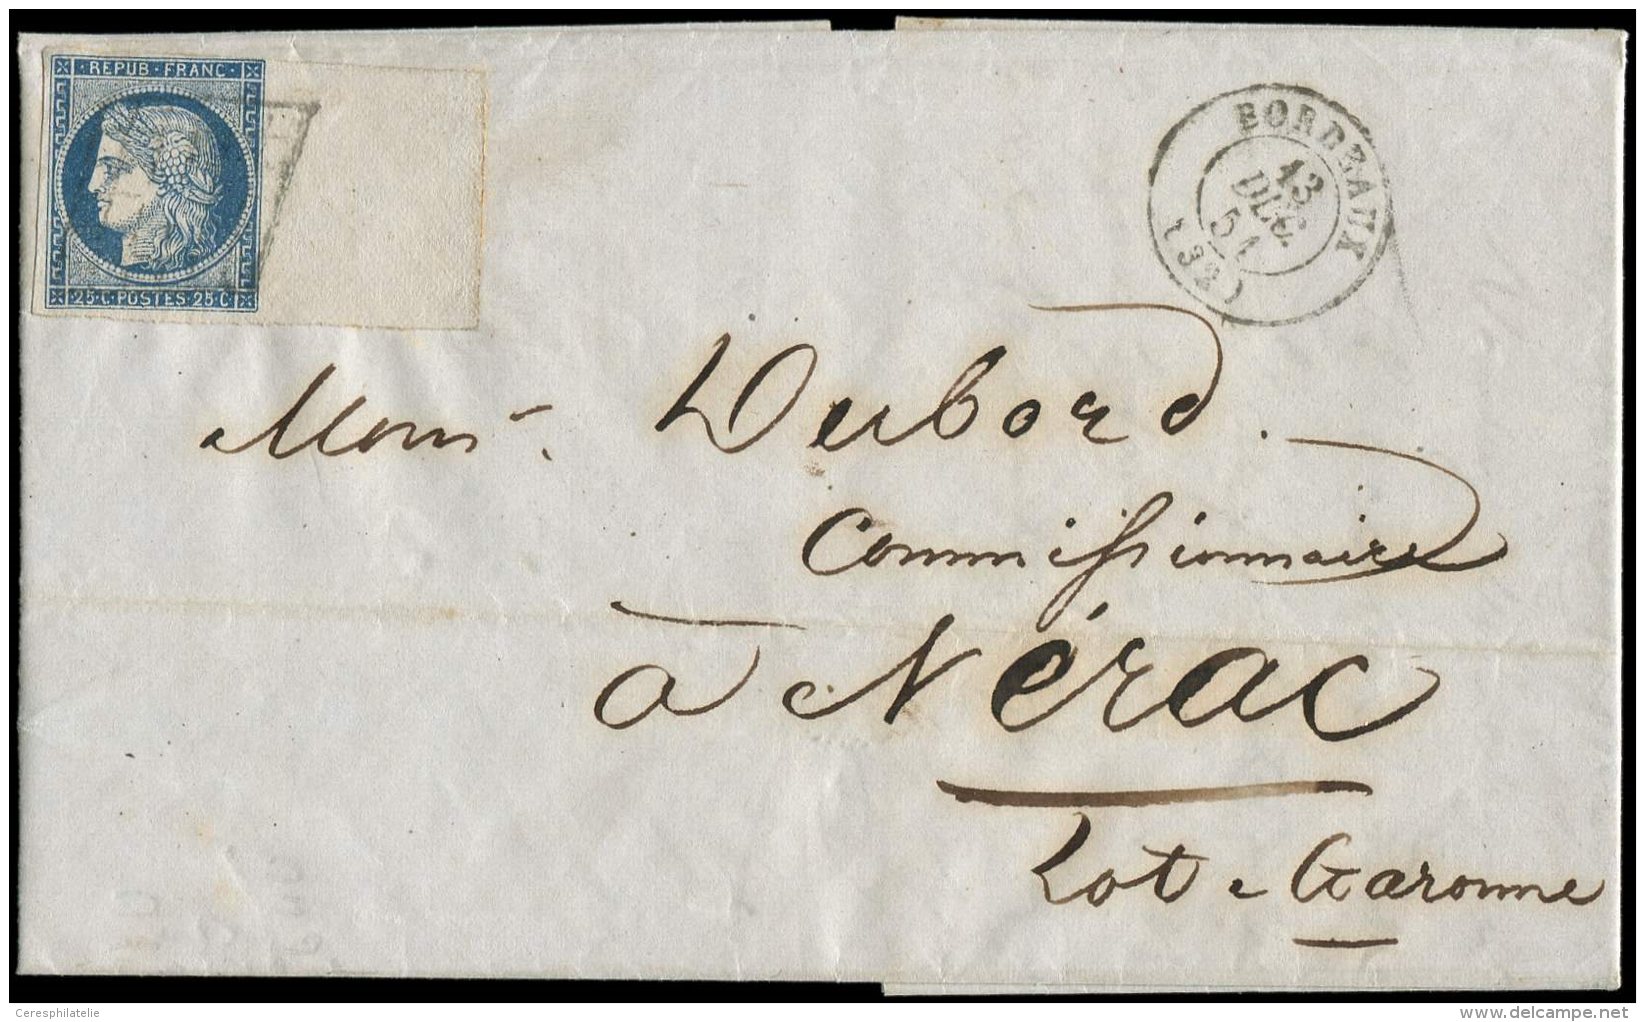 REPUB · FRANC ·
25 · C · POSTES · 25 · C
BORDEAUX
13
DEC.
51
(32)
Monsr. Dubord.
Commissionnaire
à Nérac
Lot e Garonne
Ceresphilatelie
delcampe.net